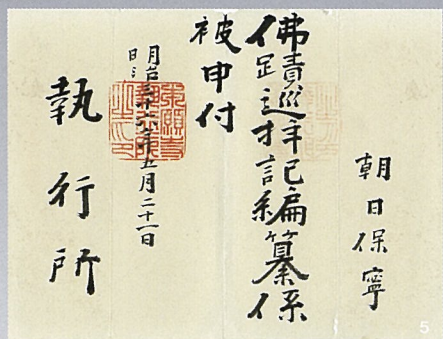 朝日保寧
佛蹟巡拝記編纂係
被申付
明治三十六年五月二十一日
執行所
5